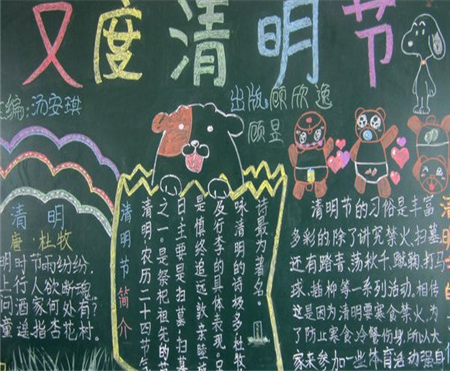 又度清明节
主编:汤安琪
出版:顾欣逸
顾昱
清明
唐·杜牧
明时节雨纷纷.
上行人欲断魂.
问酒家何处有?
童遥指杏花村.
清明节简介
清明.农历二十四节气
之一.是祭祀祖先的节
日.主要是扫墓.扫墓
是慎终追远.敦亲睦族
及行孝的具体表现.
咏清明的诗极多.杜牧
诗最为著名.
清明节的习俗是丰富
多彩的除了讲究禁火、扫墓
还有踏青、荡秋千、蹴鞠、打马
球、插柳等一系列活动。相传
这是因为清明要寒食禁火,为
了防止寒食冷餐伤身,所以大
家来参加一些体育活动强身